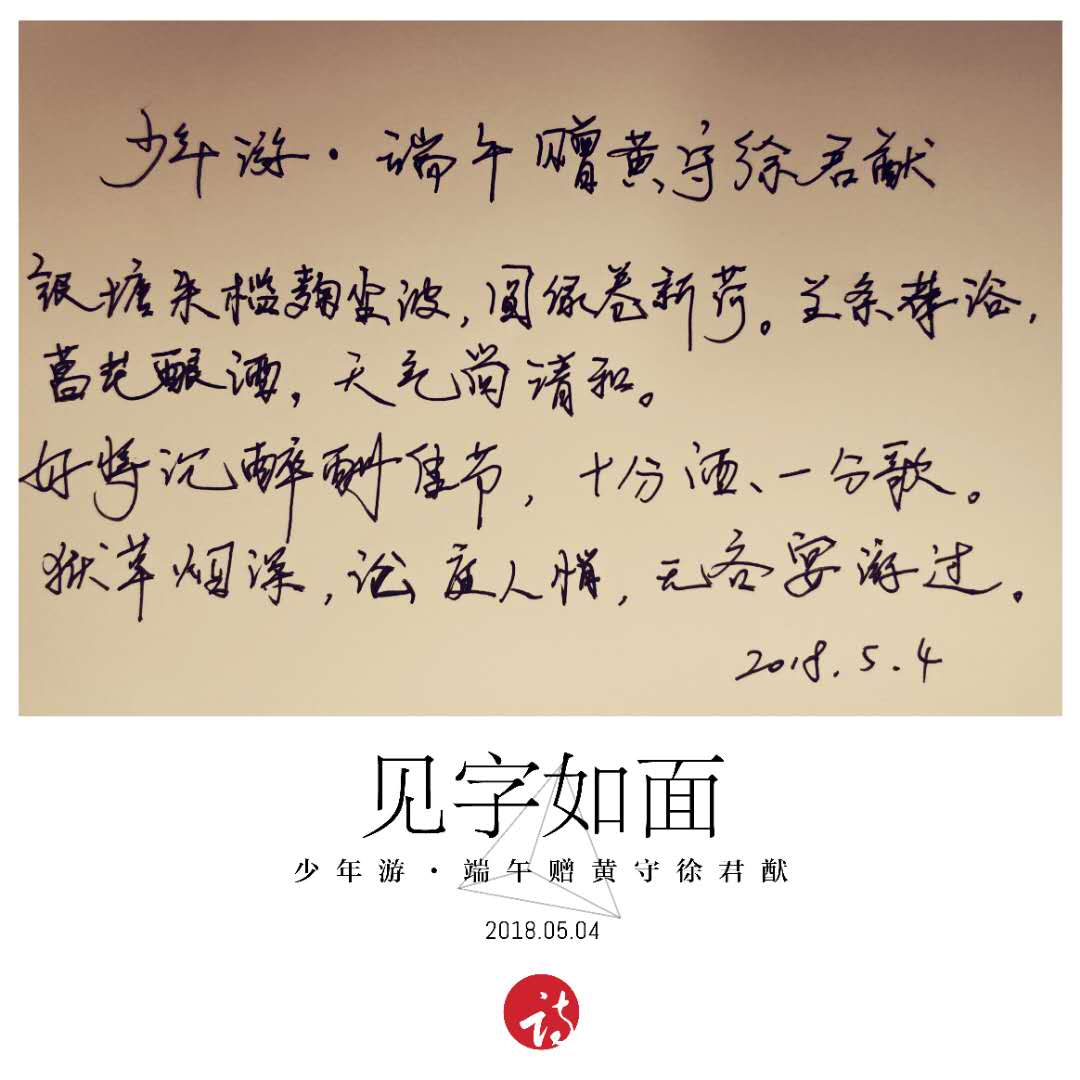 少年游·端午赠黄守徐君猷
银塘朱槛麴尘波,圆绿卷新荷。兰条荐浴,
菖花酿酒,天气尚清和。
好将沉醉酬佳节,十分酒、一分歌。
狱草烟深,讼庭人悄,无吝宴游过。
2018.5.4
见字如面
少年游·端午赠黄守徐君猷
2018.05.04
诗